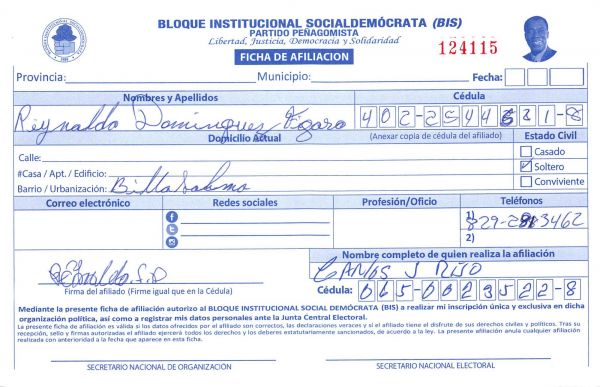 BLOQUE INSTITUCIONAL SOCIALDEMÓCRATA (BIS)
PARTIDO PEÑAGOMISTA
Libertad, Justicia, Democracia y Solidaridad
FICHA DE AFILIACION
124115
Provincia: Municipio: Fecha:
Nombres y Apellidos Cédula
Reynaldo Dominguez Figaro 402-2544 81-8
Domicilio Actual (Anexar copia de cédula del afiliado) Estado Civil
Calle:
#Casa / Apt. / Edificio:
Barrio / Urbanización:
Casado
Soltero
Conviviente
Correo electrónico Redes sociales Profesión/Oficio Teléfonos
1) 829- 3462
2)
Nombre completo de quien realiza la afiliación
Carlos J
Firma del afiliado (Firme igual que en la Cédula)
Cédula: 065-0029522-8
Mediante la presente ficha de afiliación autorizo al BLOQUE INSTITUCIONAL SOCIAL DEMÓCRATA (BIS) a realizar mi inscripción única y exclusiva en dicha
organización política, así como a registrar mis datos personales ante la Junta Central Electoral.
La presente ficha de afiliación es válida si los datos ofrecidos por el afiliado son correctos, las declaraciones veraces y si el afiliado tiene el disfrute de sus derechos civiles y políticos. Tras su
recepción, sello y firmas autorizadas el afiliado ejercerá todos los derechos y los deberes estatutariamente sancionados, de acuerdo a la ley. La presente afiliación anula cualquier afiliación
realizada con anterioridad a la fecha que aparece en esta ficha.
SECRETARIO NACIONAL DE ORGANIZACIÓN SECRETARIO NACIONAL ELECTORAL